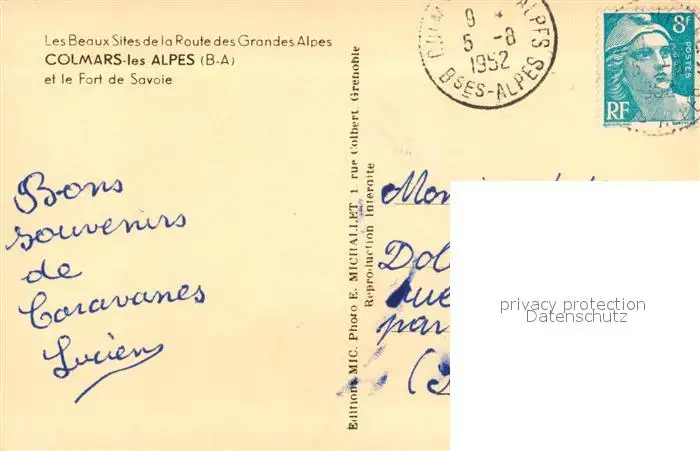 Les Beaux Sites de la Route des Grandes Alpes
COLMARS-les ALPES (B-A)
et le Fort de Savoie
Bons
souvenirs
de
Caravanes
Lucien
Editions MIC. Photo E. MICHALLET, 1 rue Colbert, Grenoble
Reproduction Interdite
ALPES
9 *
5 -8
1952
BSES-ALPES
8F
POSTES
RF
rue
par
privacy protection
Datenschutz